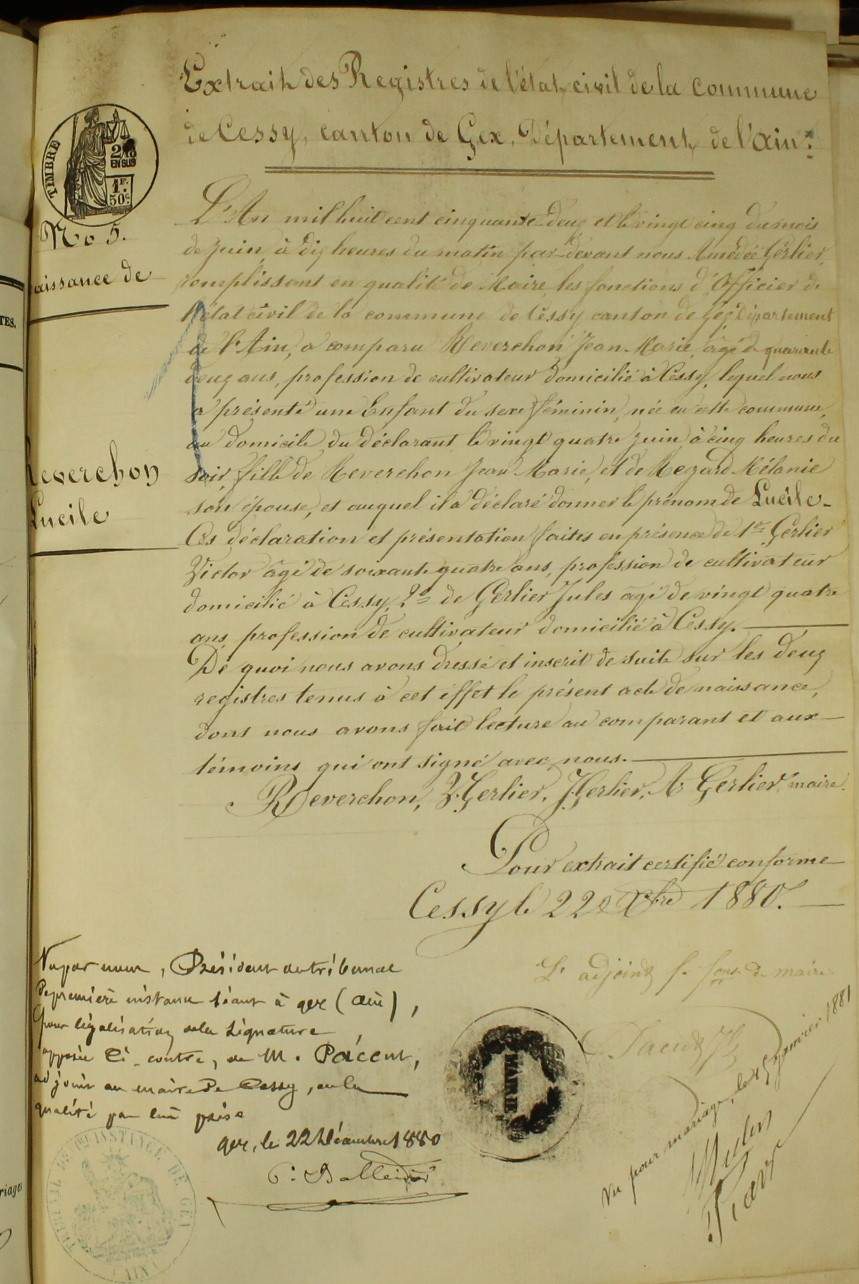 Extrait des Registres de l'état civil de la commune
de Cessy, canton de Gex, Département de l'Ain.
TIMBRE
2/10
EN SUS
1F.
50c
No 5.
aissance de
Reverchon
Lucile
L'An mil huit cent cinquante deux et le vingt cinq du mois
de juin, à dix heures du matin par devant nous Amédée Gerlier
remplissant en qualité de Maire, les fonctions d'Officier de
l'état civil de la commune de Cessy canton de Gex département
de l'Ain, a comparu Reverchon Jean Marie, âgé de quarante
deux ans, profession de cultivateur domicilié à Cessy, lequel nous
a présenté un Enfant du sexe féminin, née en cette commune,
au domicile du déclarant le vingt quatre juin à cinq heures du
soir, fille de Reverchon Jean Marie, et de Regard Mélanie
son épouse, et auquel il a déclaré donner le prénom de Lucile.
Ces déclaration et présentation faites en présence de 1er Gerlier
Victor âgé de soixante quatre ans, profession de cultivateur
domicilié à Cessy, 2o de Gerlier Jules âgé de vingt quatre
ans profession de cultivateur domicilié à Cessy.
De quoi nous avons dressé et inscrit de suite sur les deux
registres tenus à cet effet le présent acte de naissance,
dont nous avons fait lecture au comparant et aux
témoins qui ont signé avec nous.
Reverchon, V. Gerlier, J. Gerlier, A. Gerlier, maire.
Pour extrait certifié conforme
Cessy le 22 Xbre 1880.
L'adjoint f. fons de maire
Vu par nous, Président du tribunal
de première instance séant à gex (ain),
pour légalisation de la signature
apposée ci-contre, de M. Pacent,
adjoint au maire de Cessy, en la
qualité par lui prise
gex, le 22 Décembre 1880
MAIRIE
TRIBUNAL DE 1re INSTANCE DE GEX
AIN
Vu pour mariage, le 15 janvier 1881